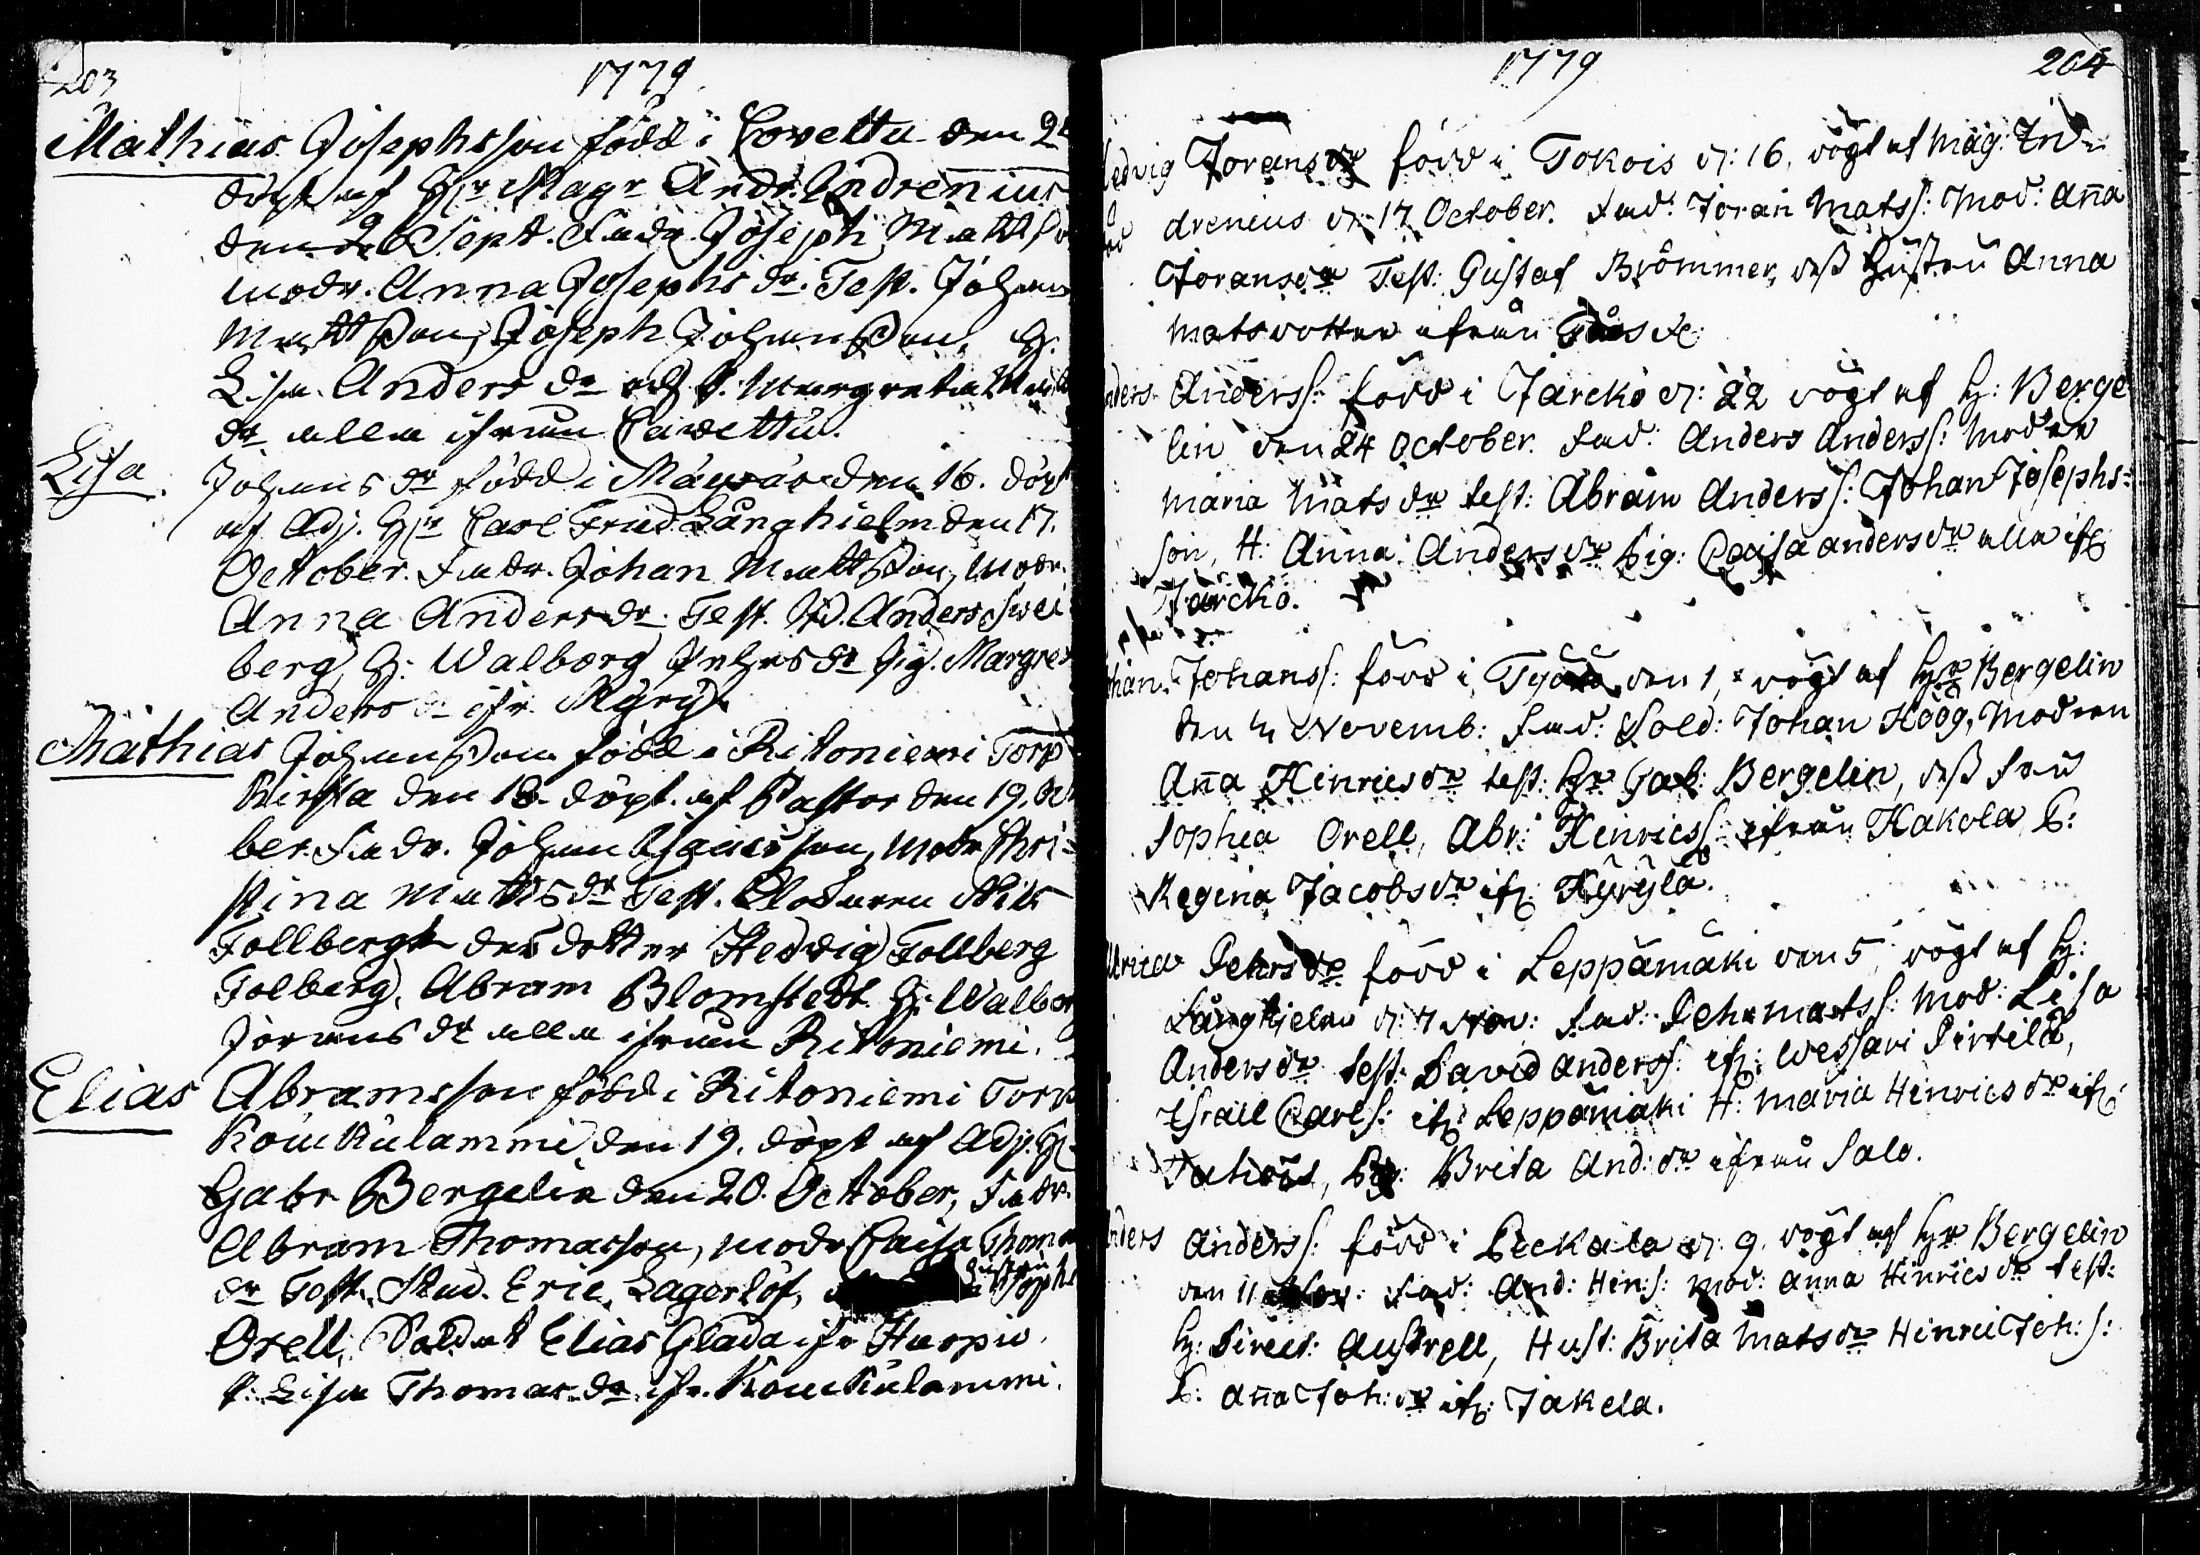 203
1779
Mathias Josephsson född i Covettu den 2
döpt af Hr Magr Andr. Indrenius
den 26 Sept. Fadr. Joseph Matts
modr. Anna Josephs dr. Test. Johan
Mattsson, Joseph Johansson, H.
Lisa Anders dr och P. Margreta Matts
dr alla ifrån Cavettu.
Lisa Johans dr född i den 16. döpt
af Adj. Hr Carl Fried. Långhielm den 17.
October. Fadr. Johan Mattsson, modr.
Anna Anders dr. Test. Anders Swe
berg, H. Walborg Johans dr Pig. Margre
Anders dr ifr.
Mathias Johansson född i Ritoniemi Torp
den 18. döpt af Pastor den 19. Oct
ber. Fadr. Johan modr Chri-
stina Matts dr Test. Nils
Follberg des dotter Hedvig Follberg
Folberg, Abram Blomstedt H. Walbor
Jörans dr alla ifrån Ritoniemi.
Elias Abramsson född i Ritoniemi Torp
Koukulammi den 19. döpt af Adj. H
Gabr Bergelin den 20. October, Fadr.
Abram Thomasson, modr Caisa Thoma
dr Test. Stud. Eric Lagerlöf, hustru Sophi
Orell, Soldat Elias Glada ifr Haapio
P. Lisa Thomas dr ifr. Koukulammi.
1779
204
Hedvig Joransdr född i Tokois d: 16, döpt af Mag: In-
drenius d: 17 October. Fad: Joran Matss: Mod: Aña
Joransdr Test: Gustaf Brömmer, deß Hustru Anna
Matsdotter ifrån
Anders Anderss: född i Jarcko d: 22 döpt af H: Berge
lin den 24 October. Fad: Anders Anderss: Modren
Maria Mats dr test: Abram Anderss: Johan Josephs-
son, H: Anna Anders dr Pig: Caisa anders dr alla ifr
Jarcko.
Johan Johanss: född i den 1, döpt af Hr Bergelin
den 4 Novemb: Fad: Sold: Johan Höög, Modren
Aña Hinricsdr test: Hr Gab: Bergelin, deß Fru
Sophia Orell, Abr: Hinricss: ifrån Kakola P:
Regina Jacobs dr ifr: Kyrylä.
Ulrica Pehrs dr född i Leppämäki den 5 döpt af H:
Långhielm d: 7 Nov: Fad: Pehr Matss: Mod: Lisa
Anders dr test: David Anderss: ifr: Wessari Pirtilä,
Israel Carls: ifr: Leppämäki H: Maria Hinrics dr ifr:
Brita And: dr ifrån Salo.
Anders Anderss: född i Peckala d: 9 döpt af Hr Bergelin
den 11 Nov: Fad: And: Hin: s: Mod: Anna Hinrics dr test:
H: Direct: Austrell, Hust: Brita Mats dr Hinric Joh: s:
P: Aña Joh: dr ifr: Jakela.